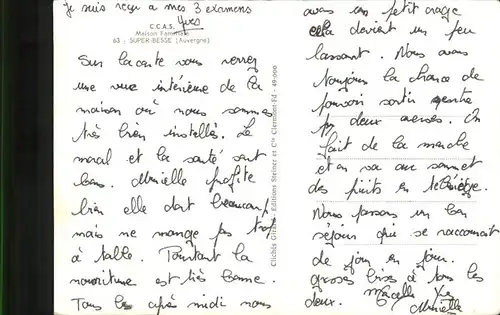 Je suis reçu à mes 3 examens
Yves
C.C.A.S.
Maison Familiale
63 - SUPER-BESSE (Auvergne)
Sur la carte vous verrez
une vue intérieure de la
maison où nous sommes
très bien installés. Le
moral et la santé sont
bons. Murielle profite
bien elle dort beaucoup
mais ne mange pas trop
à table. Pourtant la
nourriture est très bonne.
Tous les après midi nous
Editions Steiner et Cie Clermont-Fd - 49-000
avons un petit orage
cela devient un peu
lassant. Nous avons
toujours la chance de
pouvoir sortir entre
deux averses. On
fait de la marche
et on va au sommet
des puits en télésiège.
Nous passons un bon
séjour qui se raccourcit
de jour en jour.
grosses bises à tous les
deux. Marcelle Yves
Murielle